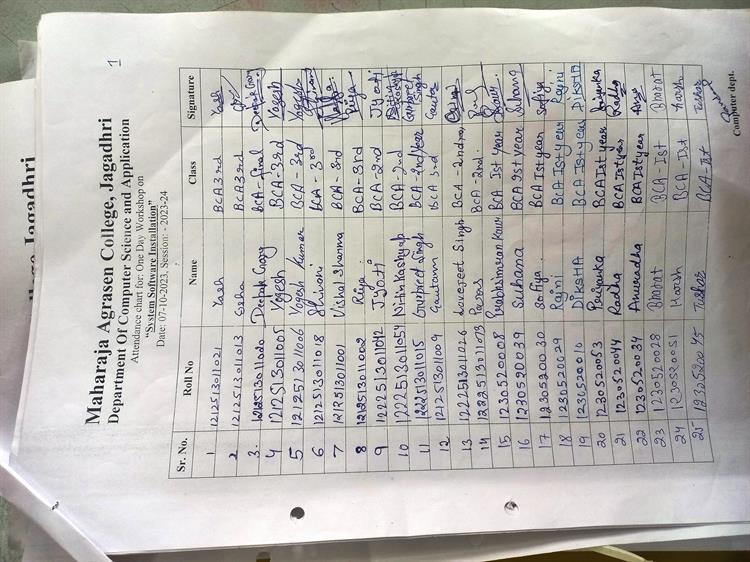 1
Maharaja Agrasen College, Jagadhri
Department Of Computer Science and Application
Attendance chart for: One Day Workshop on
"System Software Installation"
Date: 07-10-2023, Session: - 2023-24
Sr. No. Roll No Name Class Signature
1 1212513011021 Yash BCA 3rd Yash
2 1212513011013 BCA 3rd
3. 1212513011020 Deepak Garg BCA-final Deepak Garg
4 1212513011005 Yogesh BCA-3rd Yogesh
5 1212513011006 Yogesh Kumar BCA - 3rd Yogesh
6 1212513011018 Shivani BCA - 3rd
7 1212513011001 Vishal Sharma BCA - 3rd
8 1212513011002 Riya BCA-3rd Riya
9 1222513011042 Jyoti BCA-2nd Jyoti
10 1222513011054 Nitin Kashyap BCA-2nd
11 1222513011015 Gurpreet Singh BCA-2nd Year Gurpreet Singh
12 1212513011009 Gautam BCA 3rd
13 1222513011026 Lovepreet Singh BCA-2nd
14 1222513011073 Paras BCA-2nd.
15 1230520008 Prabhsimran Kaur BCA Ist Year
16 1230520039 Suhana BCA Ist year Suhana
17 1230520030 Safiya BCA Ist year Safiya
18 1230520029 Rajni BCA Ist year Rajni
19 1230520010 Diksha BCA Ist year Diksha
20 1230520053 Priyanka BCA Ist year Priyanka
21 1230520044 Radha BCA Ist year Radha
22 1230520034 Anuradha BCA Ist year
23 1230520028 Bharat BCA-Ist Bharat
24 1230520051 Harsh BCA-Ist Harsh
25 1230520045 Tushar BCA-Ist Tushar
Computer dept.